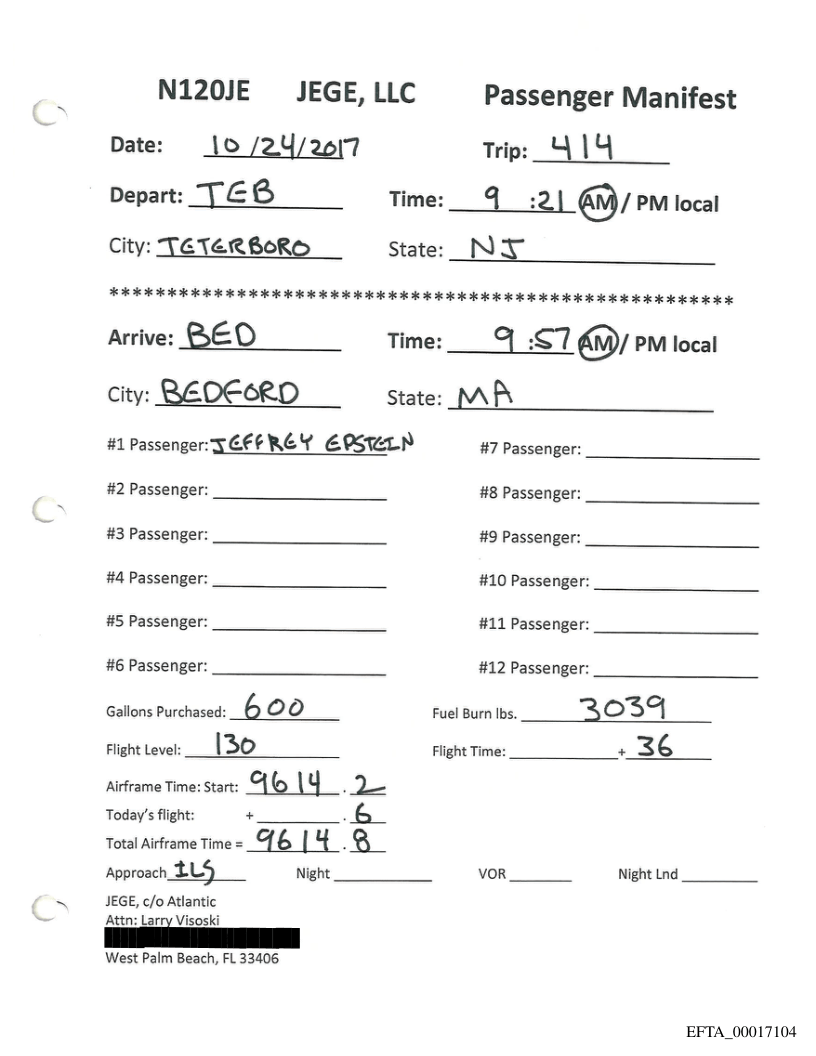 N120JE JEGE, LLC Passenger Manifest
Date: 10/24/2017 Trip: 414
Depart: TEB Time: 9:21 AM / PM local
City: TETERBORO State: NJ
******************************************************
Arrive: BED Time: 9:57 AM / PM local
City: BEDFORD State: MA
#1 Passenger: JEFFREY EPSTEIN #7 Passenger:
#2 Passenger: #8 Passenger:
#3 Passenger: #9 Passenger:
#4 Passenger: #10 Passenger:
#5 Passenger: #11 Passenger:
#6 Passenger: #12 Passenger:
Gallons Purchased: 600 Fuel Burn lbs. 3039
Flight Level: 130 Flight Time: + 36
Airframe Time: Start: 9614.2
Today's flight: + .6
Total Airframe Time = 9614.8
Approach ILS Night VOR Night Lnd
JEGE, c/o Atlantic
Attn: Larry Visoski
West Palm Beach, FL 33406
EFTA_00017104